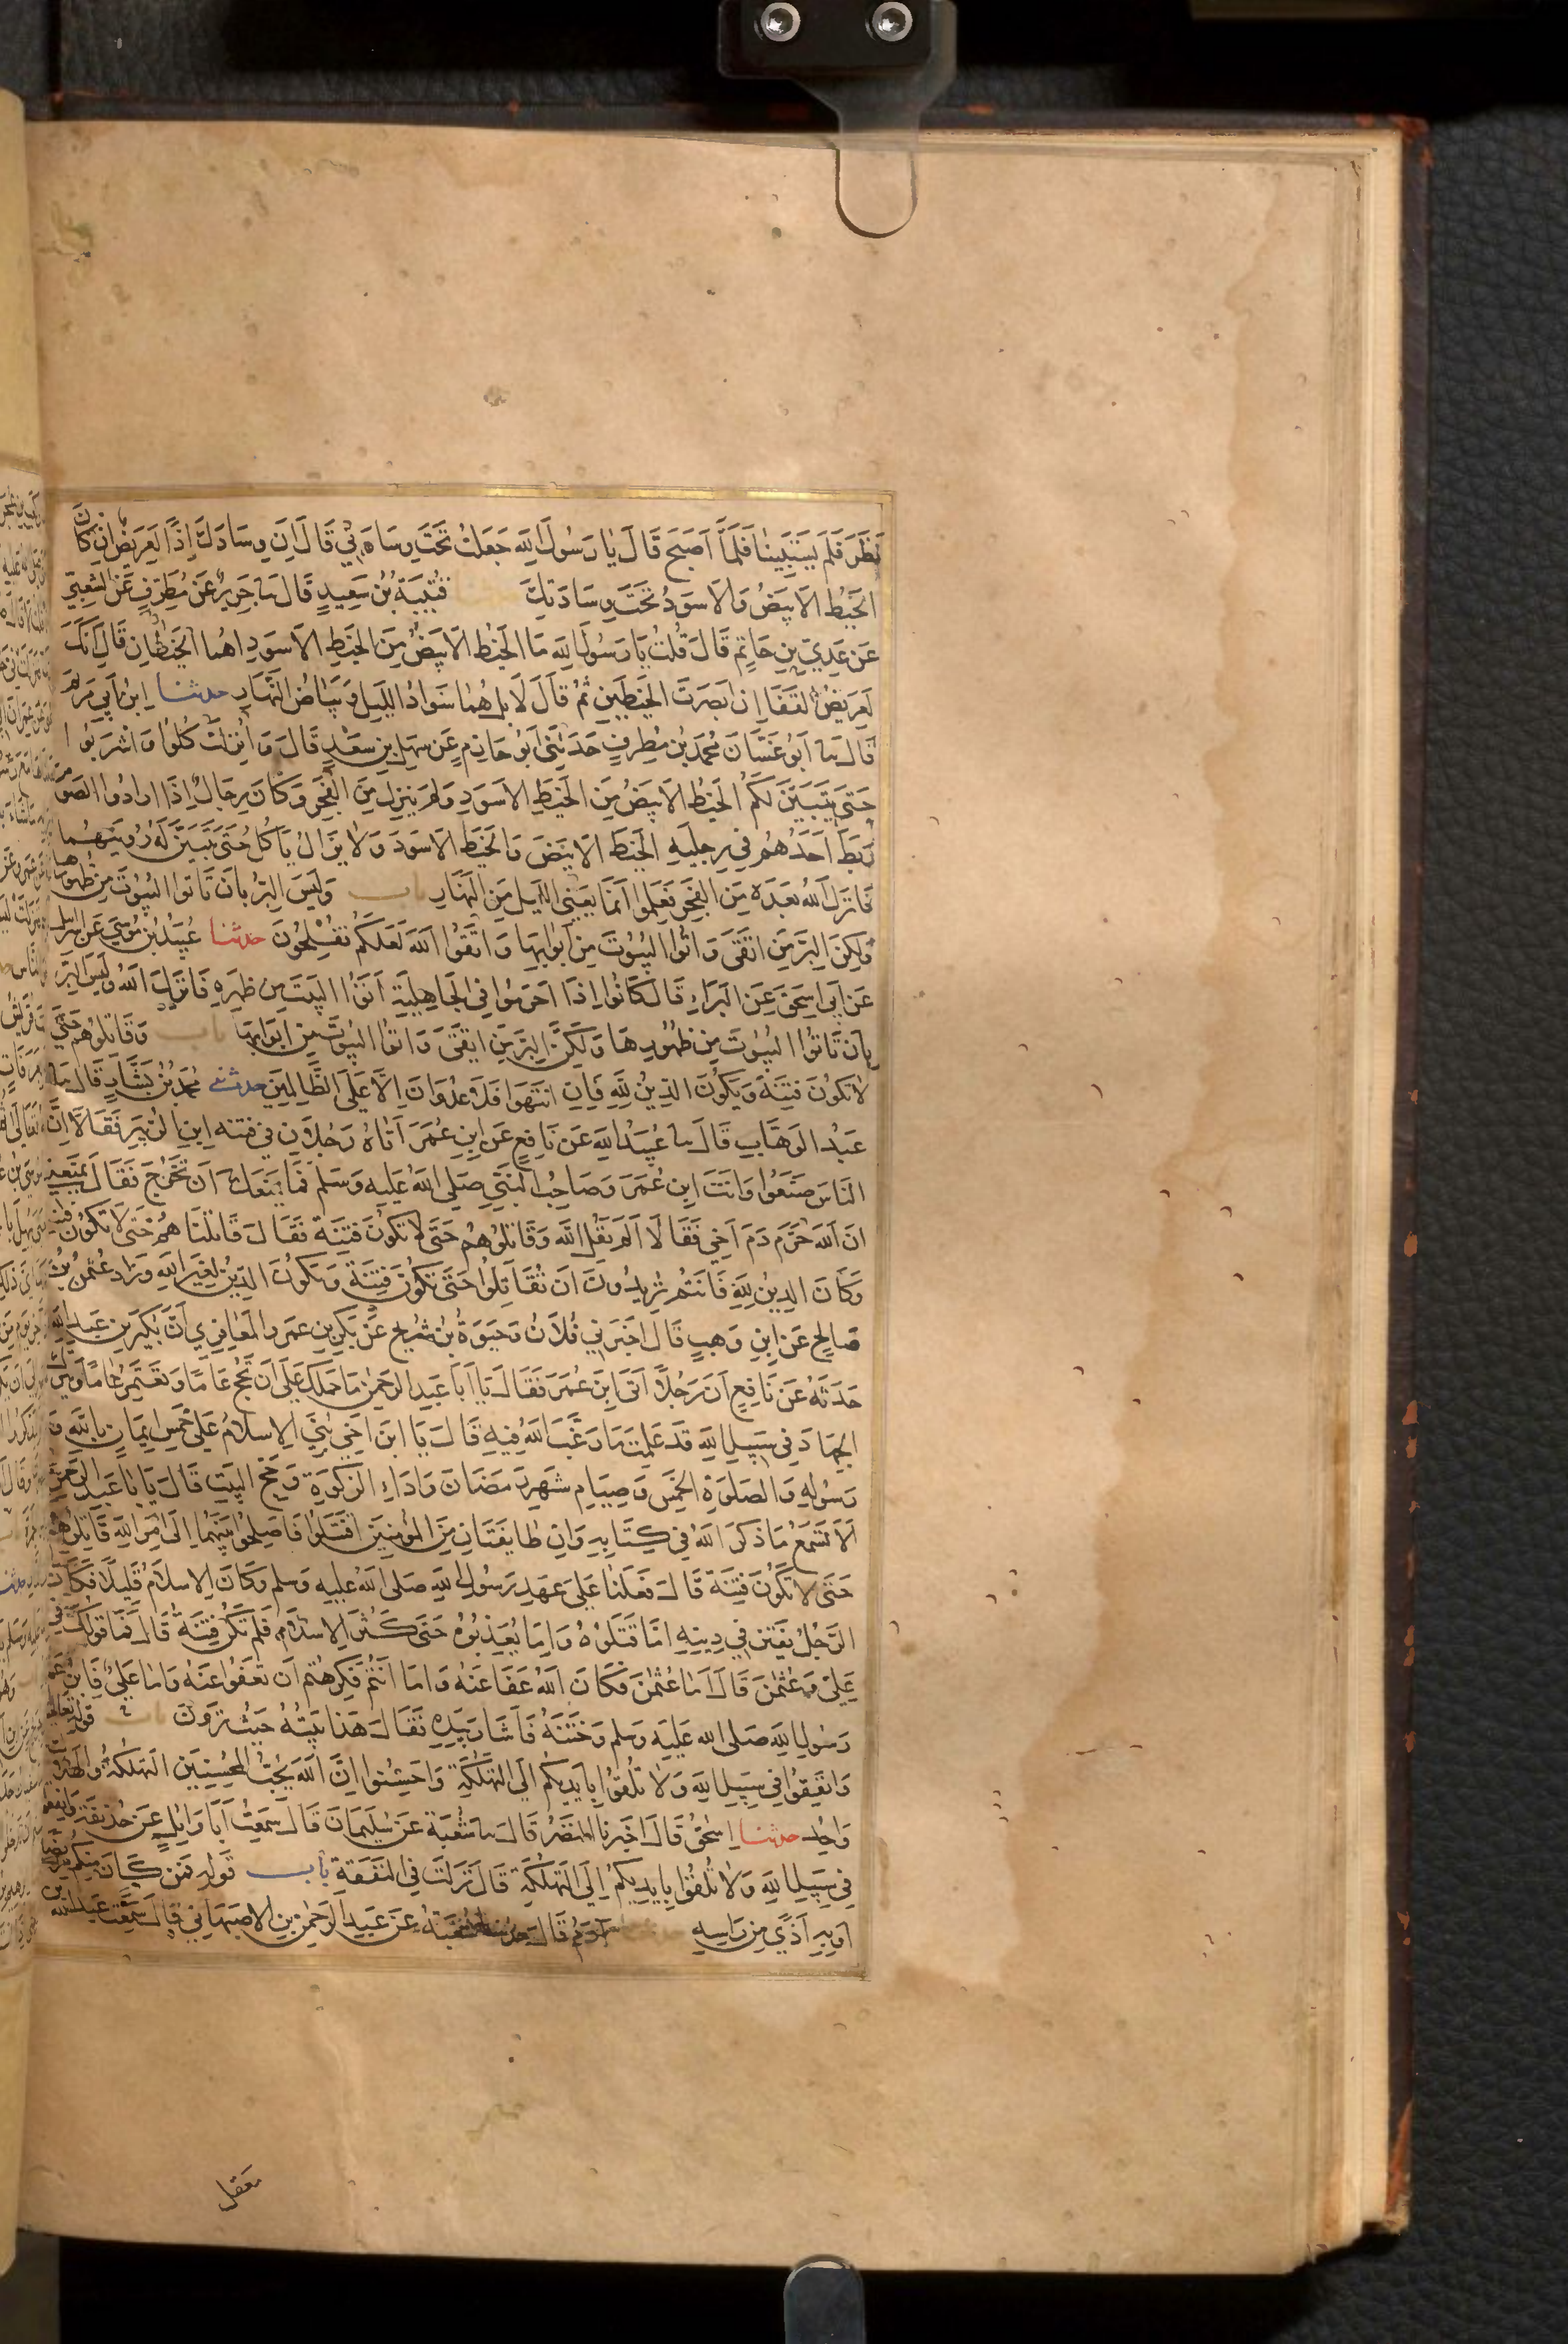 نَظَرَ فَلَمْ يَسْتَبِينَا فَلَمَّا أَصْبَحَ قَالَ يَا رَسُولَ اللهِ جَعَلْتُ تَحْتَ وِسَادَتِي قَالَ اِنَّ وِسَادَكَ إِذًا لَعَرِيضٌ اِنْ كَانَ
الخَيْطُ الاَبْيَضُ وَالاَسْوَدُ تَحْتَ وِسَادَتِكَ قُتَيْبَةُ بْنُ سَعِيدٍ قَالَ ثنا جَرِيرٌ عَنْ مُطَرِّفٍ عَنْ الشَّعْبِيِّ
عَنْ عَدِيِّ بْنِ حَاتِمٍ قَالَ قُلْتُ يَا رَسُولَ اللهِ مَا الخَيْطُ الاَبْيَضُ مِنَ الخَيْطِ الاَسْوَدِ اَهُمَا الخَيْطَانِ قَالَ اِنَّكَ
لَعَرِيضُ القَفَا اِنْ اَبْصَرْتَ الخَيْطَيْنِ ثُمَّ قَالَ لَا بَلْ هُمَا سَوَادُ اللَّيْلِ وَبَيَاضُ النَّهَارِ حدثنا ابْنُ أَبِي مَرْيَمَ
قَالَ ثنا اَبُو غَسَّانَ مُحَمَّدُ بْنُ مُطَرِّفٍ حَدَّثَنِي اَبُو حَازِمٍ عَنْ سَهْلِ بْنِ سَعْدٍ قَالَ وَاُنْزِلَتْ كُلُوا وَاشْرَبُوا
حَتَّى يَتَبَيَّنَ لَكُمُ الخَيْطُ الاَبْيَضُ مِنَ الخَيْطِ الاَسْوَدِ وَلَمْ يَنْزِلْ مِنَ الْفَجْرِ وَكَانَ رِجَالٌ اِذَا اَرَادُوا الصَّوْمَ
رَبَطَ اَحَدُهُمْ فِي رِجْلَيْهِ الخَيْطَ الاَبْيَضَ وَالخَيْطَ الاَسْوَدَ وَلَا يَزَالُ يَأكُلُ حَتَّى يَتَبَيَّنَ لَهُ رُؤيَتُهُمَا
فَاَنْزَلَ اللهُ بَعْدَهُ مِنَ الفَجْرِ فَعَلِمُوا اَنَّمَا يَعْنِي اللَّيْلَ مِنَ النَّهَارِ باب وَلَيْسَ الْبِرُّ بِاَنْ تَاتُوا الْبُيُوتَ مِنْ ظُهُورِهَا
وَلَكِنَّ الْبِرَّ مَنِ اتَّقَى وَاتُوا الْبُيُوتَ مِنْ اَبْوَابِهَا وَاتَّقُوا اللهَ لَعَلَّكُمْ تُفْلِحُونَ حدثنا عُبَيْدُ بْنُ مُوسَى عَنْ اِسْرَائِيلَ
عَنْ اَبِي اِسْحَقَ عَنِ الْبَرَاءِ قَالَ كَانُوا اِذَا اَحْرَمُوا فِي الْجَاهِلِيَّةِ اَتَوُا الْبَيْتَ مِنْ ظَهْرِهِ فَاَنْزَلَ اللهُ وَلَيْسَ الْبِرُّ
بِاَنْ تَاتُوا الْبُيُوتَ مِنْ ظُهُورِهَا وَلَكِنَّ الْبِرَّ مَنِ اتَّقَى وَاتُوا الْبُيُوتَ مِنْ اَبْوَابِهَا باب وَقَاتِلُوهُمْ حَتَّى
لَا تَكُونَ فِتْنَةٌ وَيَكُونَ الدِّينُ لِلَّهِ فَاِنِ انْتَهَوْا فَلَا عُدْوَانَ اِلَّا عَلَى الظَّالِمِينَ حدثني مُحَمَّدُ بْنُ بَشَّارٍ قَالَ ثنا
عَبْدُ الوَهَّابِ قَالَ ثنا عُبَيْدُ اللهِ عَنْ نَافِعٍ عَنِ ابْنِ عُمَرَ اَتَاهُ رَجُلَانِ فِي فتنه ابْنِ الزُّبَيْرِ فَقَالَا اِنَّ
النَّاسَ صَنَعُوا وَاَنْتَ ابْنُ عُمَرَ وَصَاحِبُ النَّبِيِّ صَلَّى اللهُ عَلَيْهِ وَسَلَّمَ فَمَا يَمْنَعُكَ اَنْ تَخْرُجَ فَقَالَ يَمْنَعُنِي
اَنَّ اللهَ حَرَّمَ دَمَ اَخِي فَقَالَا اَلَمْ يَقُلِ اللهُ وَقَاتِلُوهُمْ حَتَّى لَا تَكُونَ فِتْنَةٌ فَقَالَ قَاتَلْنَاهُمْ حَتَّى لَا تَكُونَ فِتْنَةٌ
وَكَانَ الدِّينُ لِلَّهِ فَاَنْتُمْ تُرِيدُونَ اَنْ تُقَاتِلُوا حَتَّى تَكُونَ فِتْنَةٌ وَيَكُونَ الدِّينُ لِغَيْرِ اللهِ وَزَادَ عُثْمنُ بْنُ
صَالِحٍ عَنِ ابْنِ وَهْبٍ قَالَ اَخْبَرَنِي فُلَانٌ وَحَيْوَةُ بْنُ شُرَيْحٍ عَنْ بَكْرِ بْنِ عَمْرٍو الْمَعَافِرِيِّ اَنَّ بُكَيْرَ بْنَ عَبْدِ اللهِ
حَدَّثَهُ عَنْ نَافِعٍ اَنَّ رَجُلًا اَتَى ابْنَ عُمَرَ فَقَالَ يَا اَبَا عَبْدِ الرَّحْمنِ مَا حَمَلَكَ عَلَى اَنْ تَحُجَّ عَامًا وَتَعْتَمِرَ عَامًا وَتَتْرُكَ
الْجِهَادَ فِي سَبِيلِ اللهِ قَدْ عَلِمْتَ مَا رَغَّبَ اللهُ فِيهِ قَالَ يَا ابْنَ اَخِي بُنِيَ الْاِسْلَامُ عَلَى خَمْسٍ اِيمَانٍ بِاللهِ وَ
رَسُولِهِ وَالصَّلَوةِ الْخَمْسِ وَصِيَامِ شَهْرِ رَمَضَانَ وَاَدَاءِ الزَّكَوةِ وَحَجِّ الْبَيْتِ قَالَ يَا بَا عَبْدِ الرَّحْمنِ
اَلَا تَسْمَعُ مَا ذَكَرَ اللهُ فِي كِتَابِهِ وَاِنْ طَايِفَتَانِ مِنَ الْمُومِنِينَ اقْتَتَلُوا فَاَصْلِحُوا بَيْنَهُمَا اِلَى اَمْرِ اللهِ قَاتِلُوهُمْ
حَتَّى لَا تَكُونَ فِتْنَةٌ قَالَ فَعَلْنَا عَلَى عَهْدِ رَسُولِ اللهِ صَلَّى اللهُ عَلَيْهِ وَسَلَّمَ وَكَانَ الْاِسْلَامُ قَلِيلًا فَكَانَ
الرَّجُلُ يُفْتَنُ فِي دِينِهِ اِمَّا قَتَلُوهُ وَاِمَّا يُعَذِّبُوهُ حَتَّى كَثُرَ الْاِسْلَامُ فَلَمْ تَكُنْ فِتْنَةٌ قَالَ فَمَا قَوْلُكَ فِي
عَلِيٍّ وَعُثْمنَ قَالَ اَمَّا عُثْمنُ فَكَانَ اللهُ عَفَا عَنْهُ وَاَمَّا اَنْتُمْ فَكَرِهْتُمْ اَنْ تَعْفُوا عَنْهُ وَاَمَّا عَلِيٌّ فَابْنُ عَمِّ
رَسُولِ اللهِ صَلَّى اللهُ عَلَيْهِ وَسَلَّمَ وَخَتَنُهُ فَاَشَارَ بِيَدِهِ فَقَالَ هَذَا بَيْتُهُ حَيْثُ تَرَوْنَ باب قَوْلِهِ تعالى
وَاَنْفِقُوا فِي سَبِيلِ اللهِ وَلَا تُلْقُوا بِاَيْدِيكُمْ اِلَى التَّهْلُكَةِ وَاَحْسِنُوا اِنَّ اللهَ يُحِبُّ الْمُحْسِنِينَ التَّهْلُكَةُ وَالْهَلَاكُ
وَاحِد حدثنا اِسْحَقُ قَالَ اَخْبَرَنَا النَّضْرُ قَالَ ثنا شُعْبَةُ عَنْ سُلَيْمَانَ قَالَ سَمِعْتُ اَبَا وَايِلٍ عَنْ حُذَيْفَةَ وَاَنْفِقُوا
فِي سَبِيلِ اللهِ وَلَا تُلْقُوا بِاَيْدِيكُمْ اِلَى التَّهْلُكَةِ قَالَ نَزَلَتْ فِي النَّفَقَةِ باب قَوْلِهِ فَمَنْ كَانَ مِنْكُمْ مَرِيضًا
اَوْ بِهِ اَذًى مِنْ رَاْسِهِ آدَمُ قَالَ حدثنا شُعْبَةُ عَنْ عَبْدِ الرَّحْمنِ بْنِ الْاَصْبَهَانِيِّ قَالَ سَمِعْتُ عَبْدَ اللهِ بْنَ
معقل